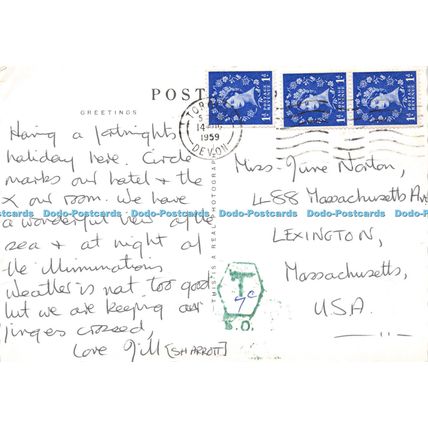 POST
GREETINGS
Having a fortnights
holiday here. Circle
marks our hotel & the
X our room. We have
a wonderful view of the
sea & at night of
the illuminations
Weather is not too good
but we are keeping our
fingers crossed,
Love Jill [SHARROTT]
THIS IS A REAL PHOTOGRAPH
TOR
14
1959
DEVON
POSTAGE REVENUE
1D 1D
POSTAGE REVENUE
1D 1D
POSTAGE REVENUE
1D 1D
Miss June Norton,
488 Massachusetts Av
LEXINGTON,
Massachusetts,
U.S.A.
T
7c
B.O.
Dodo-Postcards Dodo-Postcards Dodo-Postcards Dodo-Postcards Dodo-Postcards